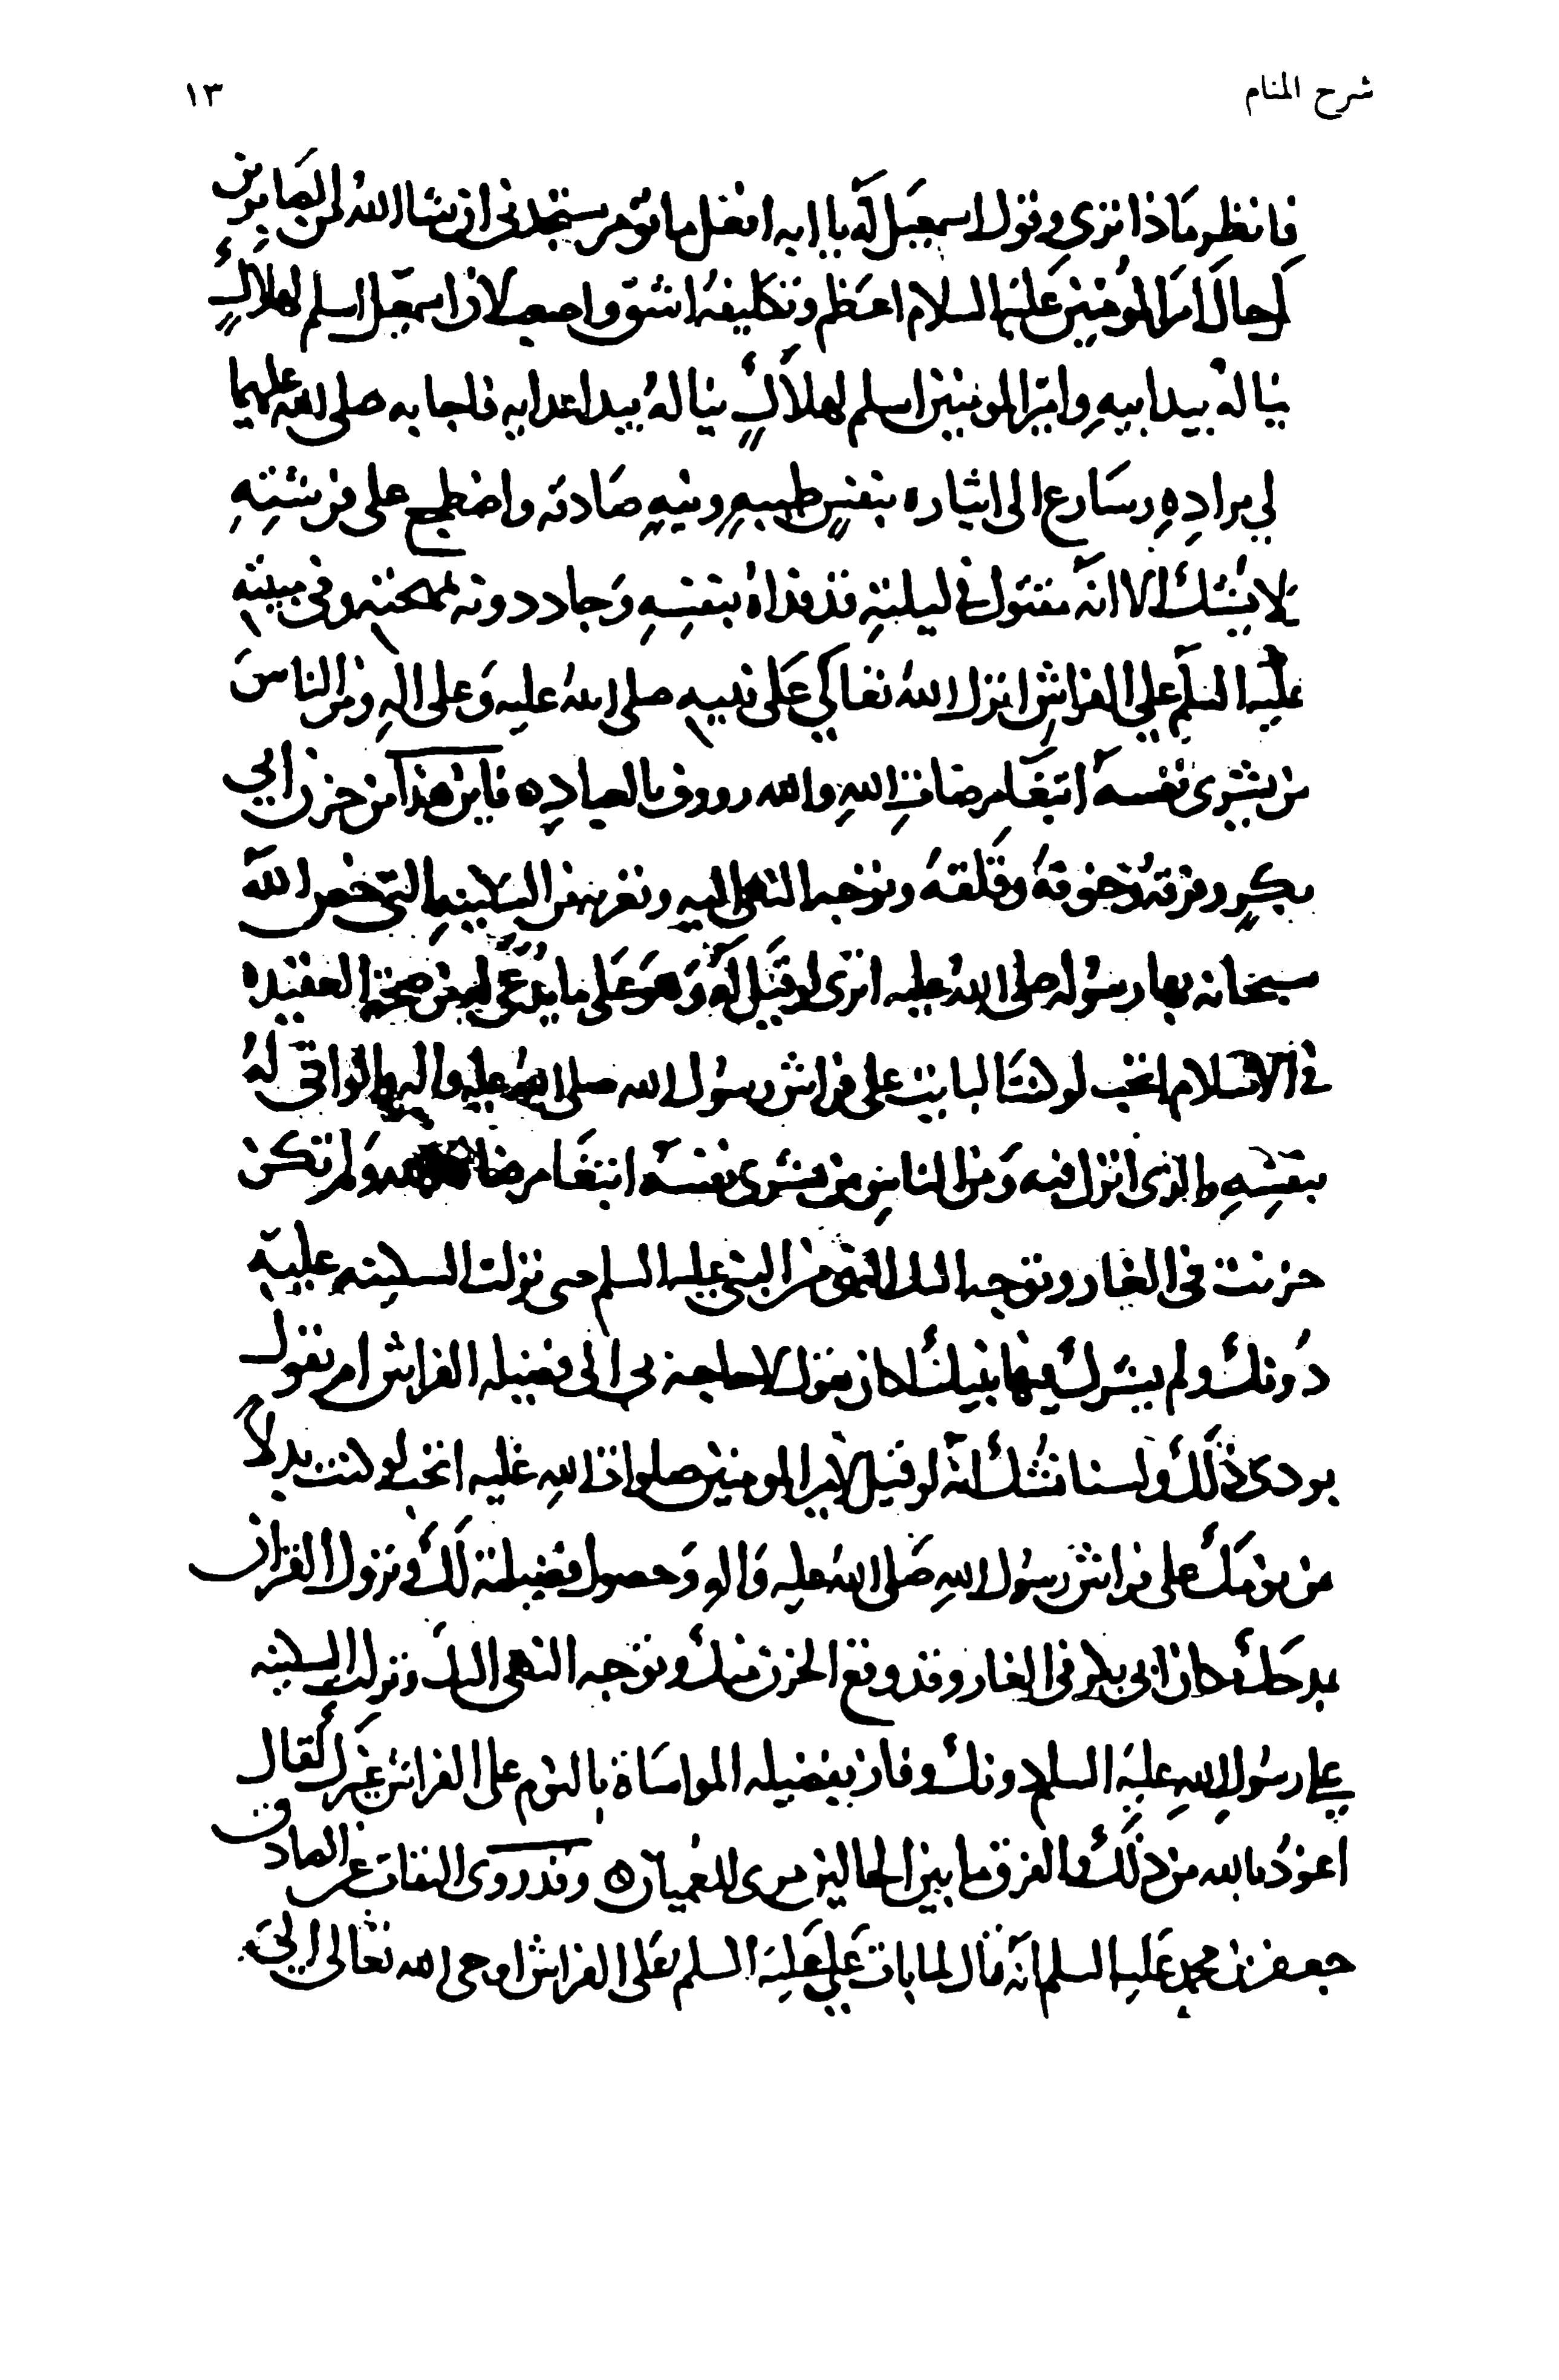 شرح المنام ١٣
فانظر مَاذا ترى وقول اسمعيل لَهُ يا ابه افعل ما تؤمر ستجدنى ان شا اللهُ لمن الصَابرين
لَحالَ امَير المؤمنين عَليه السلام اعظم وتكليفهُ اشق واصعب لان اسمعيل اسلم لهلاكٍ
ينالهُ بيد ابيهِ وامير المومنين اسلم لهلاكٍ ينالهُ بيد اعدايه فاجابه صلى الله عليهما
لى مرادِهِ وسَارع الى ايثاره بنفسٍ طيبهٍ ونيهٍ صَادقه واضطجع على فرشتِهِ
لا يشك الا انهُ مقتول فى ليلتهِ قد فداهُ بنفسِهِ وَجاد دونه بمهجته وفى مبيته
عليه السلم على الفراشِ انزل اللهُ تعَالى عَلى نبيه صلى اللهُ عليه وَعلى الهِ ومن الناسَ
من يشرى نفسهُ ابتغَا مرضاتِ اللهِ والله رووف بالعبادِ ه فاين هَذا من حزن ابي
بكرٍ وفرقهُ وخوفهُ وقَلقهُ وتوجه النهى اليه وتعريهِ من السكينه التى خص اللهَ
سبحانه بها رسُوله صلى اللهُ عليه اترى لو قيَل لَهُ وَهوَ عَلى ما يُدعَى له من صحة العقيده
فى الاسلام اتحب لو كنتَ البايت على فراش رسُول الله صلى الله عليه واله والواقى لهُ
بنفسِهِ والذى انزل فيه وَمن الناسِ من يشرى نفسَهُ ابتغَا مرضات الله وَلم تكن
حزنت فى الغار وتوجه اليك النهى من النبى عليه السلم حين نزلت السكينه عليهِ
دُونك ولم يشرك فيها بينك اكان يقول لا حاجه بى الى فضيله الفراش ام يقول
بودى ذلك ولسنا نشك انهُ لو قيل لامير المومنين صلوات اللهِ عليه اتحب لو كنت بدلاً
من نومَك على فراش رسُول اللهِ صَلى اللهُ عليه وَالهِ وَحصول فضيلة لَك فى نزول القران
بمدحَك مكان ابى بكر فى الغار وقد وقع الحزن منك وتوجه النهى اليك ونزلت السكينه
على رسُول اللهِ عليه السلم دونك وفاز بفضيله المواسَاة بالنوم على الفراش غيرك لقال
اعوذُ بالله من ذلك فالفرق ما بين الحالين يرى للعميان ه وقد روى الثقات عن الصادق
جعفر بن محمد عَليه السلم انهُ قال لما بات عَلى عليه السلم عَلى الفراش اوحى الله تعَالى الى